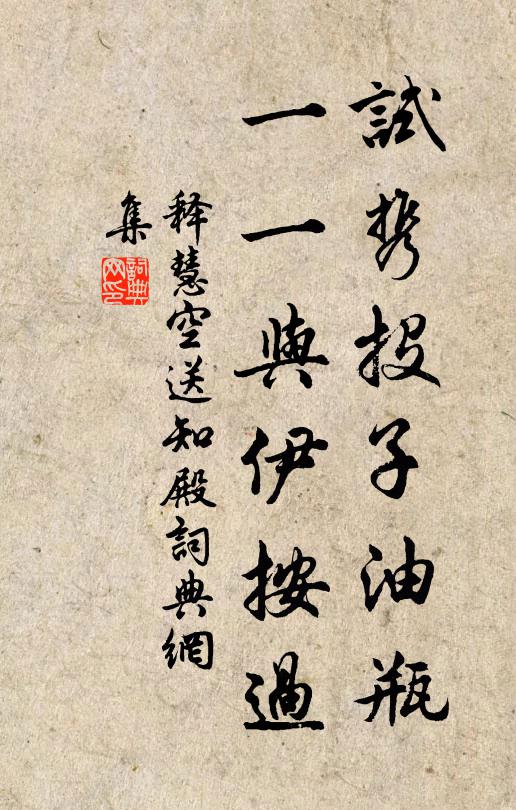 試携投子油瓶
一一與伊按過
释慧空送知殿詞典網
集
詞典
网印